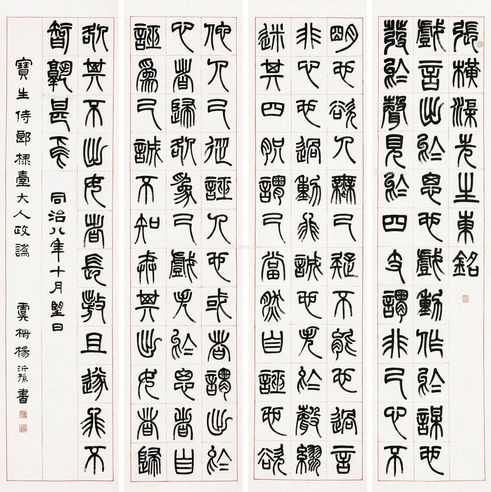 張橫渠先生東銘
戲言出於思也戲動作於謀也
發於聲見於四支謂非己心不
明也欲人無己疑不能也過言
非心也過動非誠也失於聲繆
迷其四體謂己當然自誣也欲
他人己從誣人也或者謂出於
心者歸咎為己戲失於思者自
誣為己誠不知戒其出女者歸
咎其不出女者長敖且遂非不
智孰甚焉 同治八年十月望日
寶生侍郎 臺大人政譌 虞 楊沂孫書